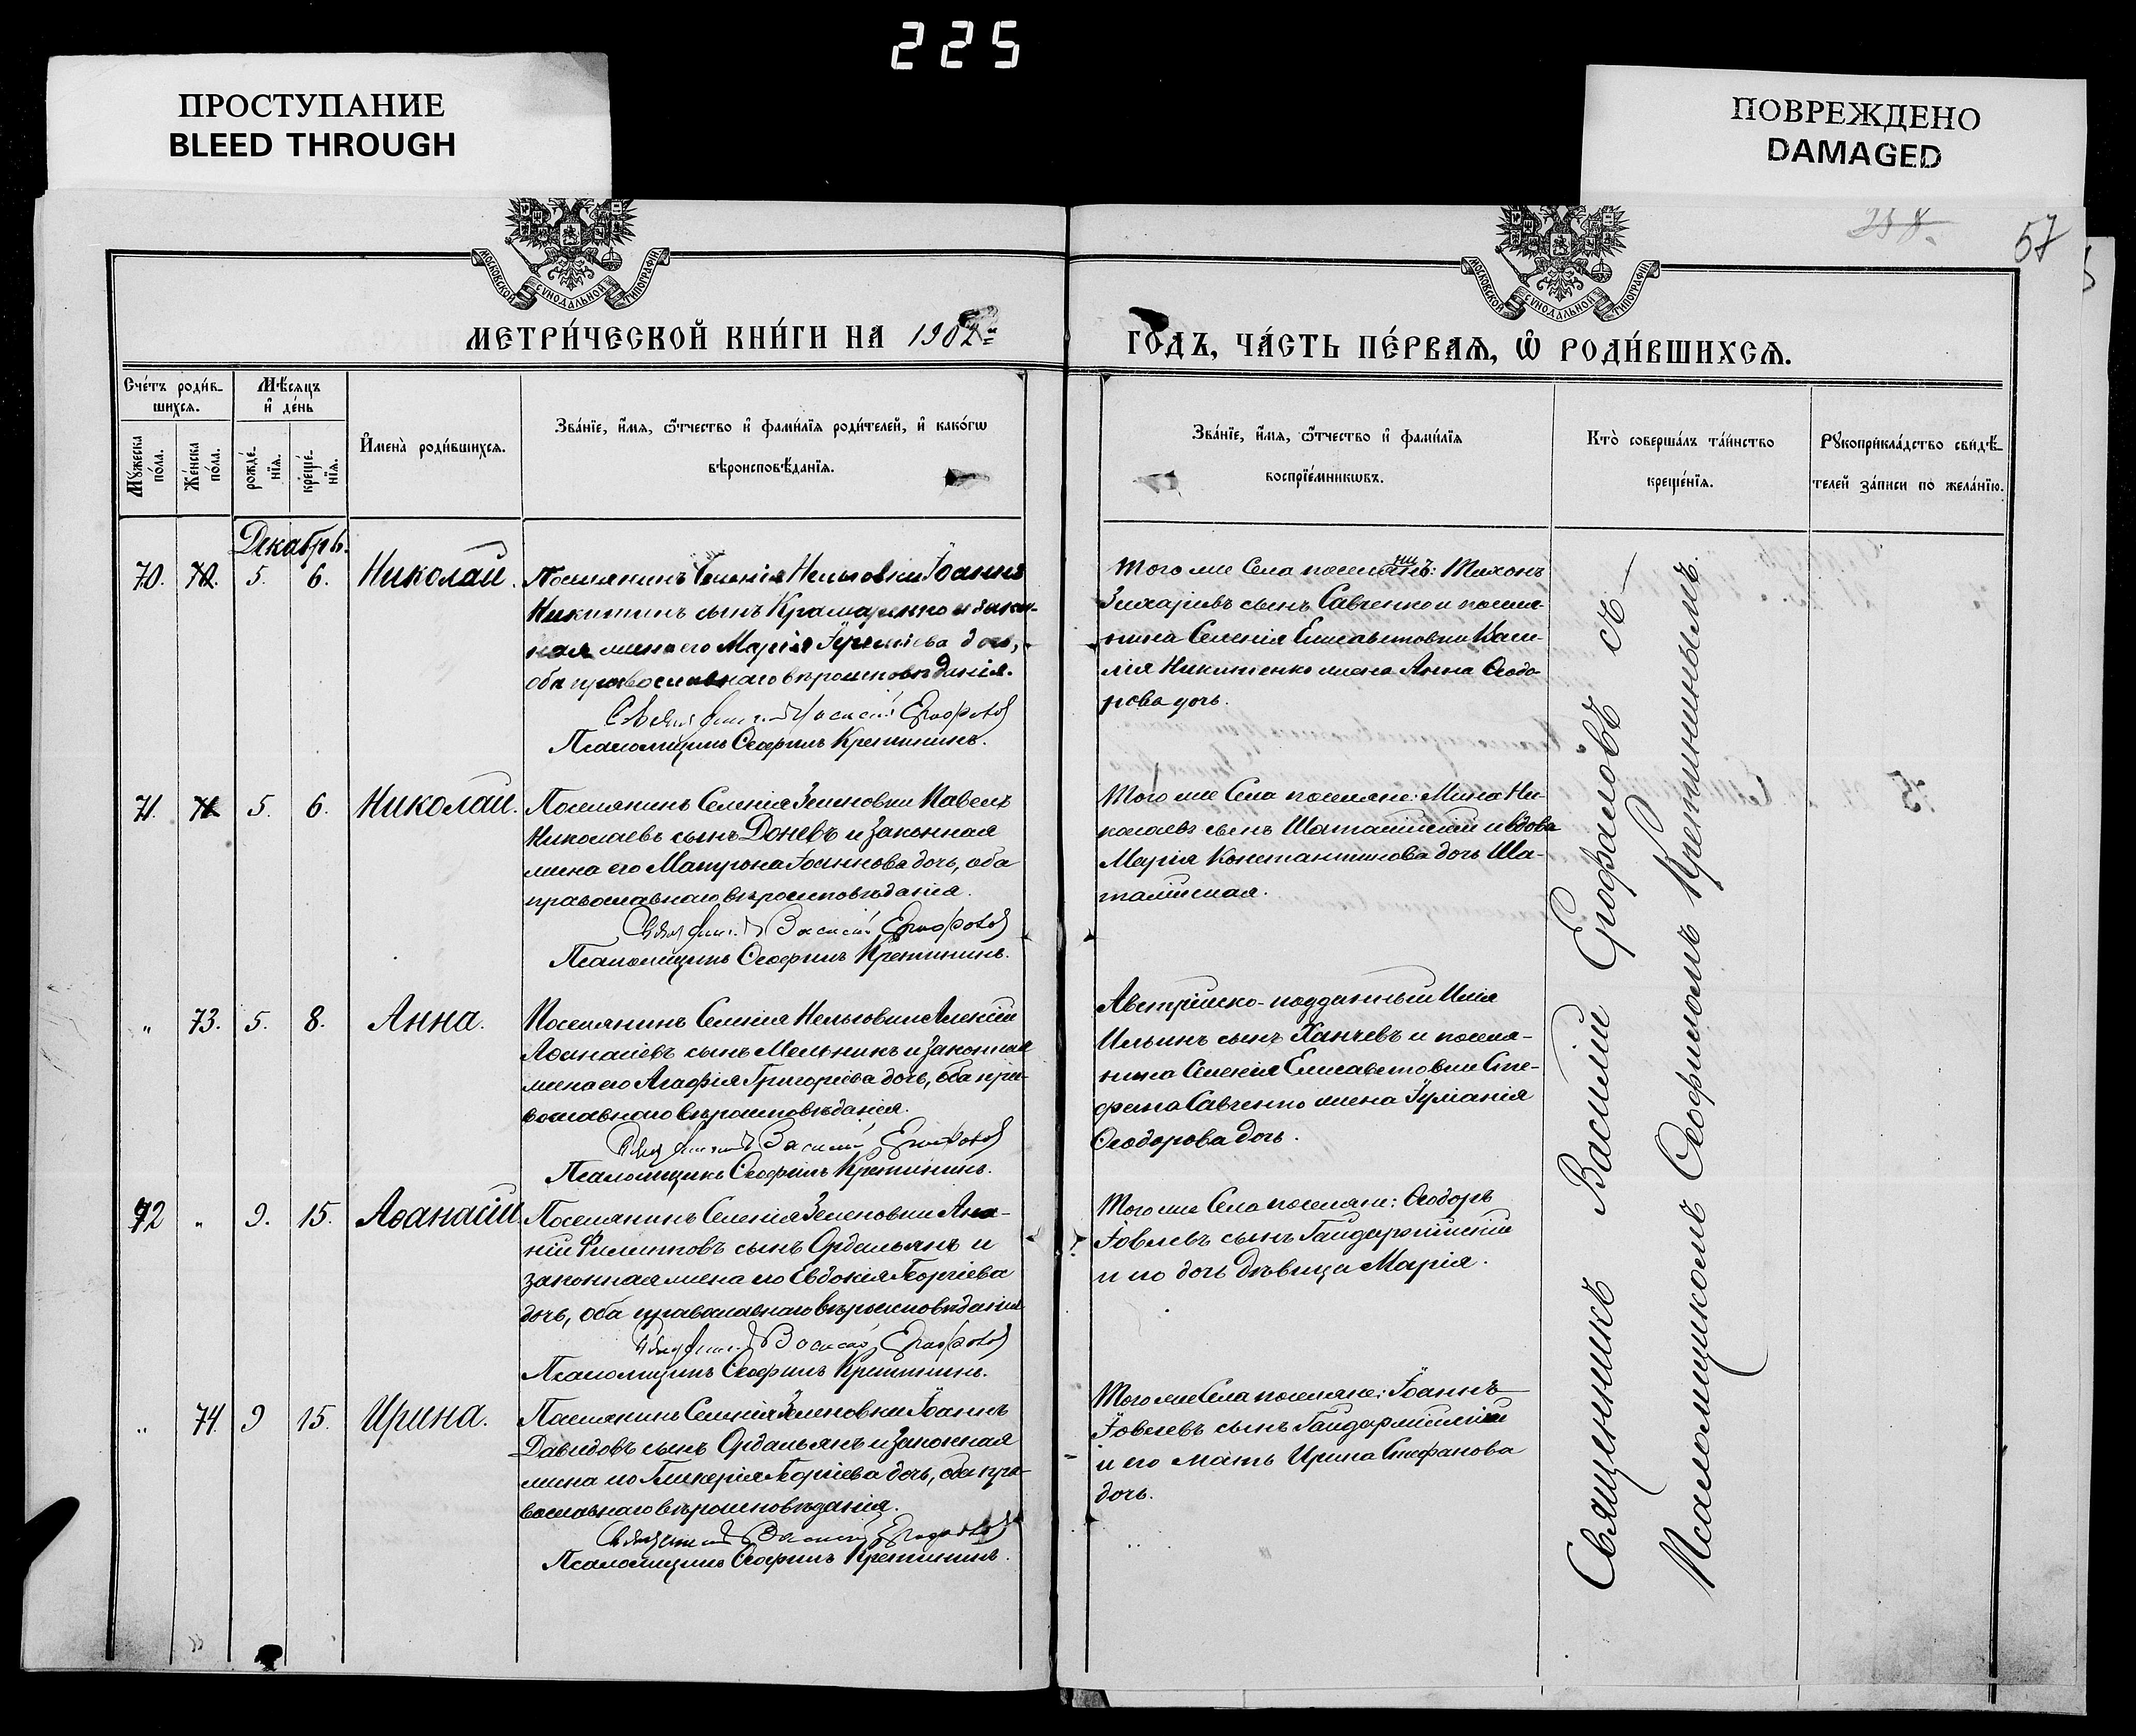 225
ПРОСТУПАНИЕ
BLEED THROUGH
ПОВРЕЖДЕНО
DAMAGED
57
МОСКОВСКОЙ СѴНОДАЛЬНОЙ ТИПОГРАФІИ
МОСКОВСКОЙ СѴНОДАЛЬНОЙ ТИПОГРАФІИ
МЕТРИ́ЧЕСКОЙ КНИ́ГИ НА 1902
ГО́ДЪ, ЧА́СТЬ ПЕ́РВАѦ, Ѡ҆ РОДИ́ВШИХСѦ.
Сче́тъ роди́в-
шихсѧ.
Мꙋ́жеска по́ла.
Же́нска по́ла.
Мѣ́сѧцъ
и҆ де́нь
рожде́-
нїѧ.
креще́-
нїѧ.
И҆мена̀ роди́вшихсѧ.
Зва́нїе, и҆́мѧ, ѻ҆́тчество и҆ фами́лїѧ роди́телей, и҆ како́гѡ
вѣроисповѣ́данїѧ.
Зва́нїе, и҆́мѧ, ѻ҆́тчество и҆ фами́лїѧ
воспрїе́мникѡвъ.
Кто̀ соверша́лъ та́инство
креще́нїѧ.
Рꙋкоприкла́дство свидѣ́-
телей за́писи по жела́нїю.
Декабрь.
70. 5. 6. Николай.
Поселянинъ Селенія Нельговки Іоаннъ
Никитинъ сынъ Крамаренко и закон-
ная жена его Марія дочь,
оба православнаго вѣроисповѣданія.
Священникъ Василій Ерофаловъ
Псаломщикъ Ѳеофилъ Кретининъ.
Того же Села поселянинъ: Тихонъ
Захаріевъ сынъ Савченко и поселя-
нина Селенія Елисаветовки Васи-
лія Никитенко жена Анна Ѳеодо-
рова дочь.
71. 5. 6. Николай.
Поселянинъ Селенія Зеленовки Павелъ
Николаевъ сынъ Доневъ и законная
жена его Матрона Іоаннова дочь, оба
православнаго вѣроисповѣданія.
Священникъ Василій Ерофаловъ
Псаломщикъ Ѳеофилъ Кретининъ.
Того же Села поселяне: Мина Ни-
колаевъ сынъ и вдова
Марія Константинова дочь
„ 73. 5. 8. Анна.
Поселянинъ Селенія Нельговки Алексій
Аѳанасіевъ сынъ Мельникъ и законная
жена его Агафія Григоріева дочь, оба пра-
вославнаго вѣроисповѣданія.
Священникъ Василій Ерофаловъ
Псаломщикъ Ѳеофилъ Кретининъ.
Австрійско-подданный Илія
Ильинъ сынъ Ханчевъ и поселя-
нина Селенія Елисаветовки Сте-
фана Савченко жена Іуліанія
Ѳеодорова дочь.
72 „ 9. 15. Аѳанасій.
Поселянинъ Селенія Зеленовки Ана-
ній Филипповъ сынъ Ордальянъ и
законная жена его Евдокія Георгіева
дочь, оба православнаго вѣроисповѣданія.
Священникъ Василій Ерофаловъ
Псаломщикъ Ѳеофилъ Кретининъ.
Того же Села поселяне: Ѳеодоръ
Іовлевъ сынъ Гайдаржійскій
и его дочь дѣвица Марія.
„ 74. 9 15. Ирина.
Поселянинъ Селенія Зеленовки Іоаннъ
Давидовъ сынъ Ордальянъ и законная
жена его Гликерія Георгіева дочь, оба пра-
вославнаго вѣроисповѣданія.
Священникъ Василій Ерофаловъ
Псаломщикъ Ѳеофилъ Кретининъ.
Того же Села поселяне: Іоаннъ
Іовлевъ сынъ Гайдаржійскій
и его мать Ирина Стефанова
дочь.
Священникъ Василій Ерофаловъ съ
Псаломщикомъ Ѳеофиломъ Кретининымъ.